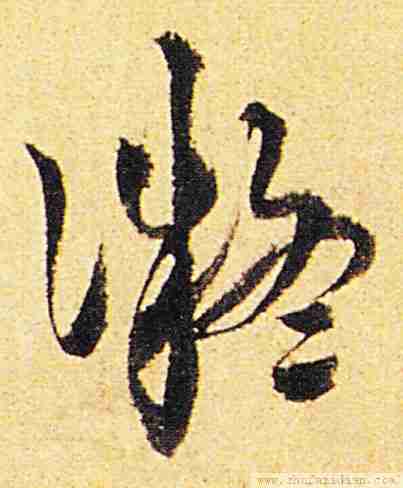 凝
www.shufazidian.com